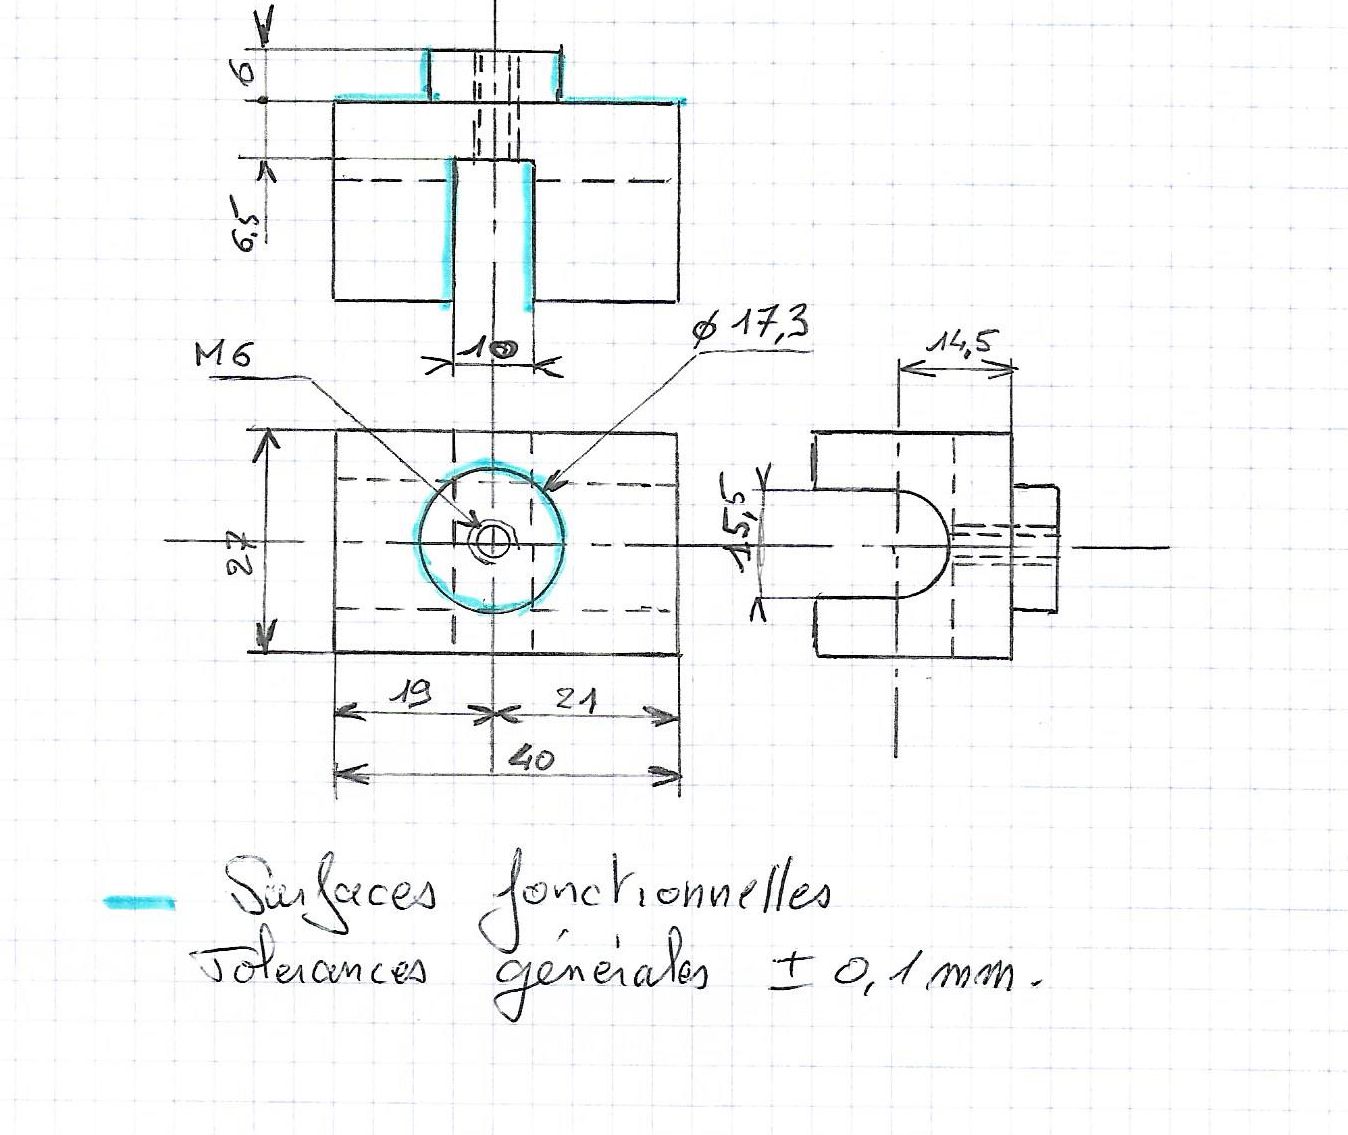 6
6,5
10
M6
ϕ 17,3
14,5
27
15,5
19
21
40
Surfaces fonctionnelles
Tolerances générales ± 0,1 mm.